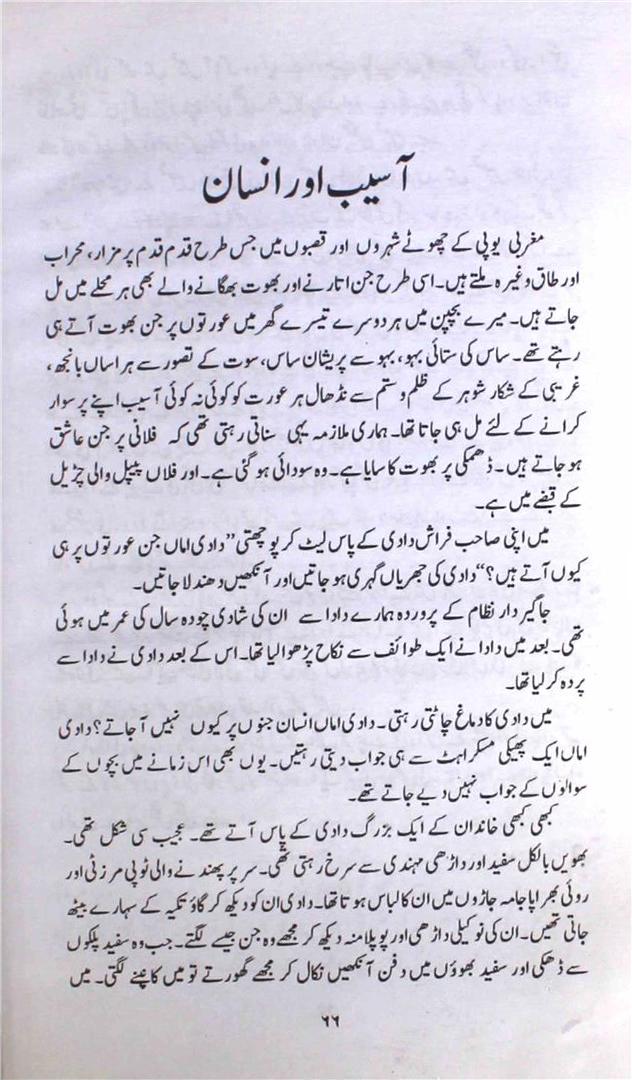 آسیب اور انسان
مغربی یوپی کے چھوٹے شہروں اور قصبوں میں جس طرح قدم قدم پر مزار، محراب
اور طاق وغیرہ ملتے ہیں۔ اسی طرح جن اتارنے اور بھوت بھگانے والے بھی ہر محلے میں مل
جاتے ہیں۔ میرے بچپن میں ہر دوسرے تیسرے گھر میں عورتوں پر جن بھوت آتے ہی
رہتے تھے۔ ساس کی ستائی بہو، بہو سے پریشان ساس، سوت کے تصور سے ہراساں بانجھ،
غریبی کے شکار شوہر کے ظلم و ستم سے نڈھال ہر عورت کو کوئی نہ کوئی آسیب اپنے پر سوار
کرانے کے لئے مل ہی جاتا تھا۔ ہماری ملازمہ یہی سناتی رہتی تھی کہ فلانی پر جن عاشق
ہو جاتے ہیں۔ ڈھمکی پر بھوت کا سایا ہے۔ وہ سودائی ہو گئی ہے۔ اور فلاں پیپل والی چڑیل
کے قبضے میں ہے۔
میں اپنی صاحب فراش دادی کے پاس لیٹ کر پوچھتی ”دادی اماں جن عورتوں پر ہی
کیوں آتے ہیں؟“ دادی کی جھریاں گہری ہو جاتیں اور آنکھیں دھندلا جاتیں۔
جاگیردار نظام کے پروردہ ہمارے دادا سے ان کی شادی چودہ سال کی عمر میں ہوئی
تھی۔ بعد میں دادا نے ایک طوائف سے نکاح پڑھوا لیا تھا۔ اس کے بعد دادی نے دادا سے
پردہ کر لیا تھا۔
میں دادی کا دماغ چاٹتی رہتی۔ دادی اماں انسان جنوں پر کیوں نہیں آ جاتے؟ دادی
اماں ایک پھیکی مسکراہٹ سے ہی جواب دیتی رہتیں۔ یوں بھی اس زمانے میں بچوں کے
سوالوں کے جواب نہیں دیے جاتے تھے۔
کبھی کبھی خاندان کے ایک بزرگ دادی کے پاس آتے تھے۔ عجیب سی شکل تھی۔
بھویں بالکل سفید اور داڑھی مہندی سے سرخ رہتی تھی۔ سر پر پھندنے والی ٹوپی مرزئی اور
روئی بھرا پاجامہ جاڑوں میں ان کا لباس ہوتا تھا۔ دادی ان کو دیکھ کر گاؤ تکیہ کے سہارے بیٹھ
جاتی تھیں۔ ان کی نوکیلی داڑھی اور پوپلا منہ دیکھ کر مجھے وہ جن جیسے لگتے۔ جب وہ سفید پلکوں
سے ڈھکی اور سفید بھوؤں میں دفن آنکھیں نکال کر مجھے گھورتے تو میں کانپنے لگتی۔ میں
۶۶